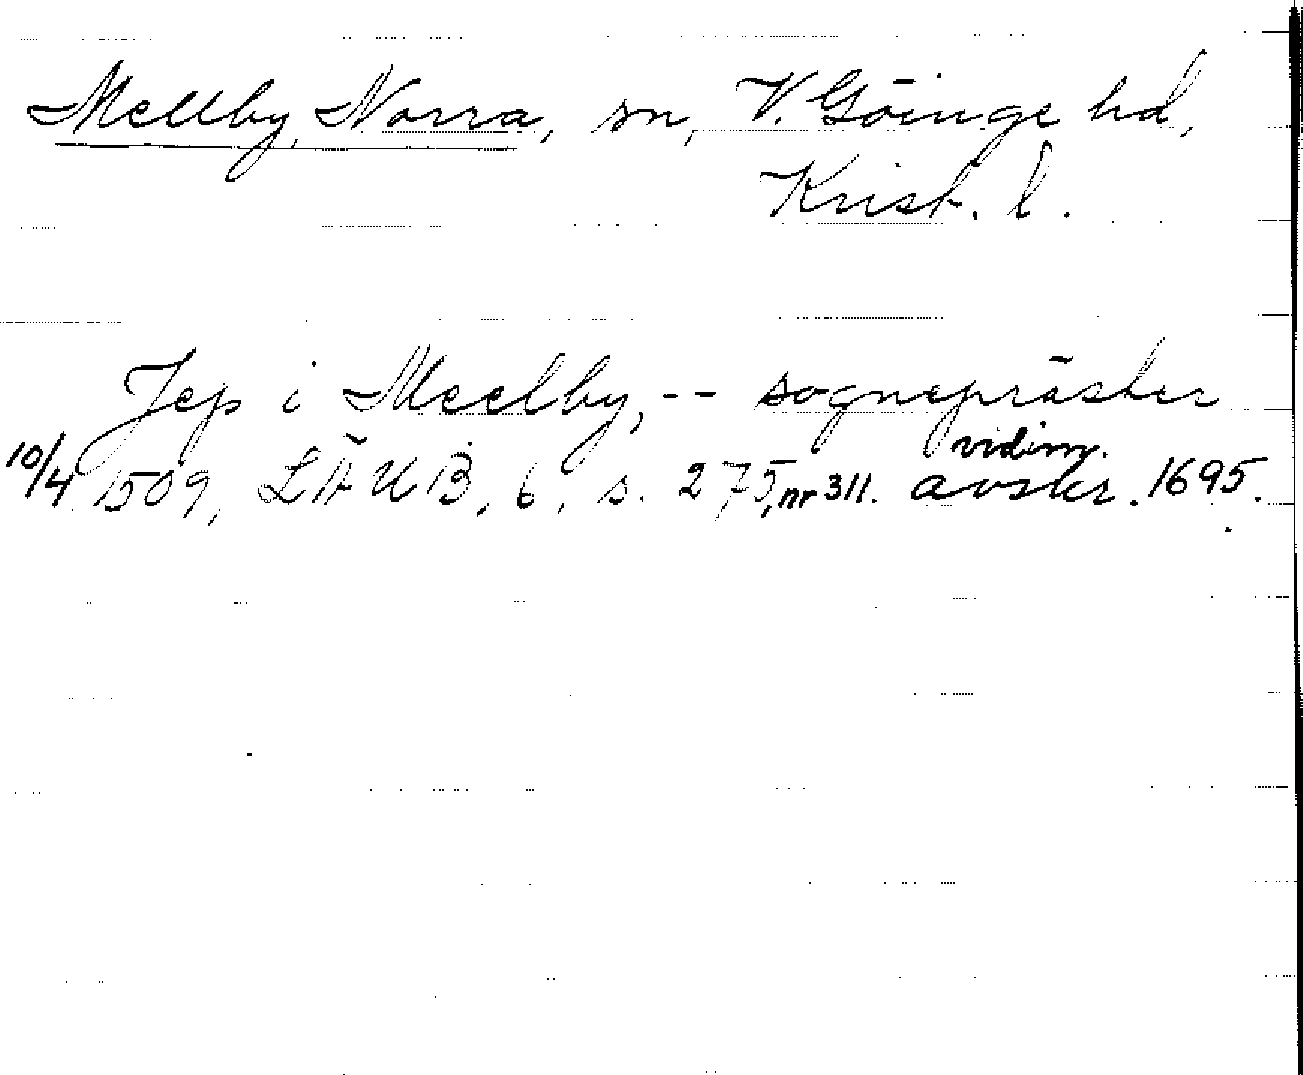 Mellby, Norra, sn, V. Göinge hd,
Krist. l.
Jep i Meelby, -- sognepräster
vidim.
10/4 1509, LÄUB, 6, s. 275, nr 311. avskr. 1695.